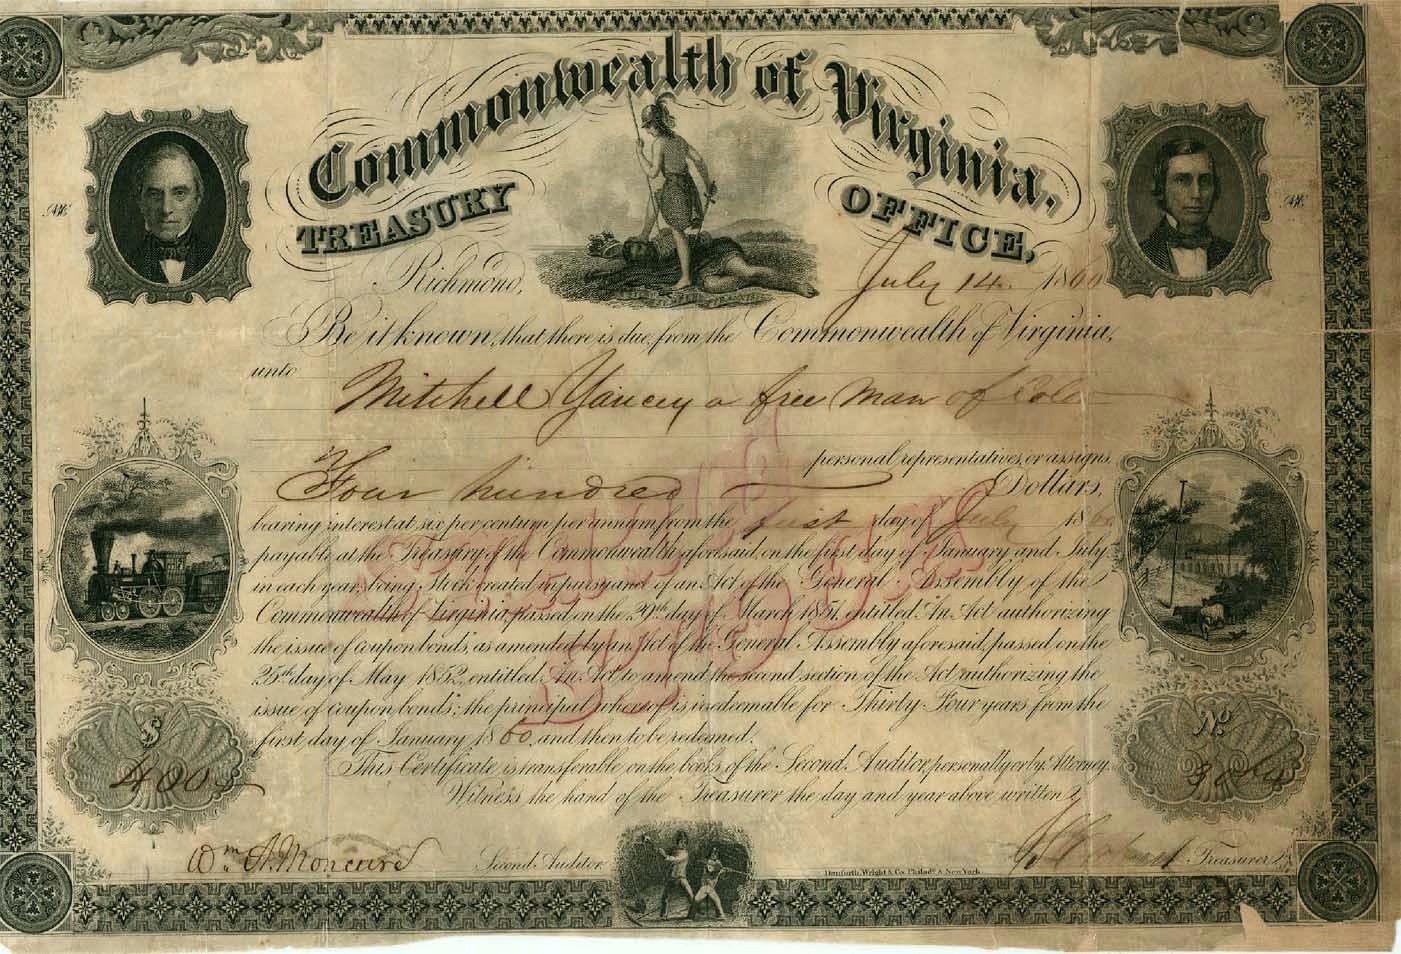 Commonwealth of Virginia,
TREASURY OFFICE,
Richmond, July 14. 1860
Be it known, that there is due, from the Commonwealth of Virginia,
unto
Mitchell Yancey a free man of Color
personal representatives, or assigns,
Four hundred Dollars,
bearing interest at six per centum per annum from the first day of July 1860
payable at the Treasury of the Commonwealth aforesaid, on the first day of January and July
in each year, being Stock created in pursuance of an Act of the General Assembly of the
Commonwealth of Virginia, passed on the 29th day of March 1851, entitled An Act authorizing
the issue of coupon bonds, as amended by an Act of the General Assembly aforesaid, passed on the
25th day of May 1852, entitled An Act to amend the second section of the Act authorizing the
issue of coupon bonds; the principal whereof is redeemable for Thirty Four years from the
first day of January 1860, and then to be redeemed.
This Certificate is transferable on the books of the Second Auditor, personally or by Attorney.
Witness the hand of the Treasurer the day and year above written.
$
400
No.
Wm. A. Moncure Second Auditor.
Treasurer
Danforth, Wright & Co. Philada. & New York